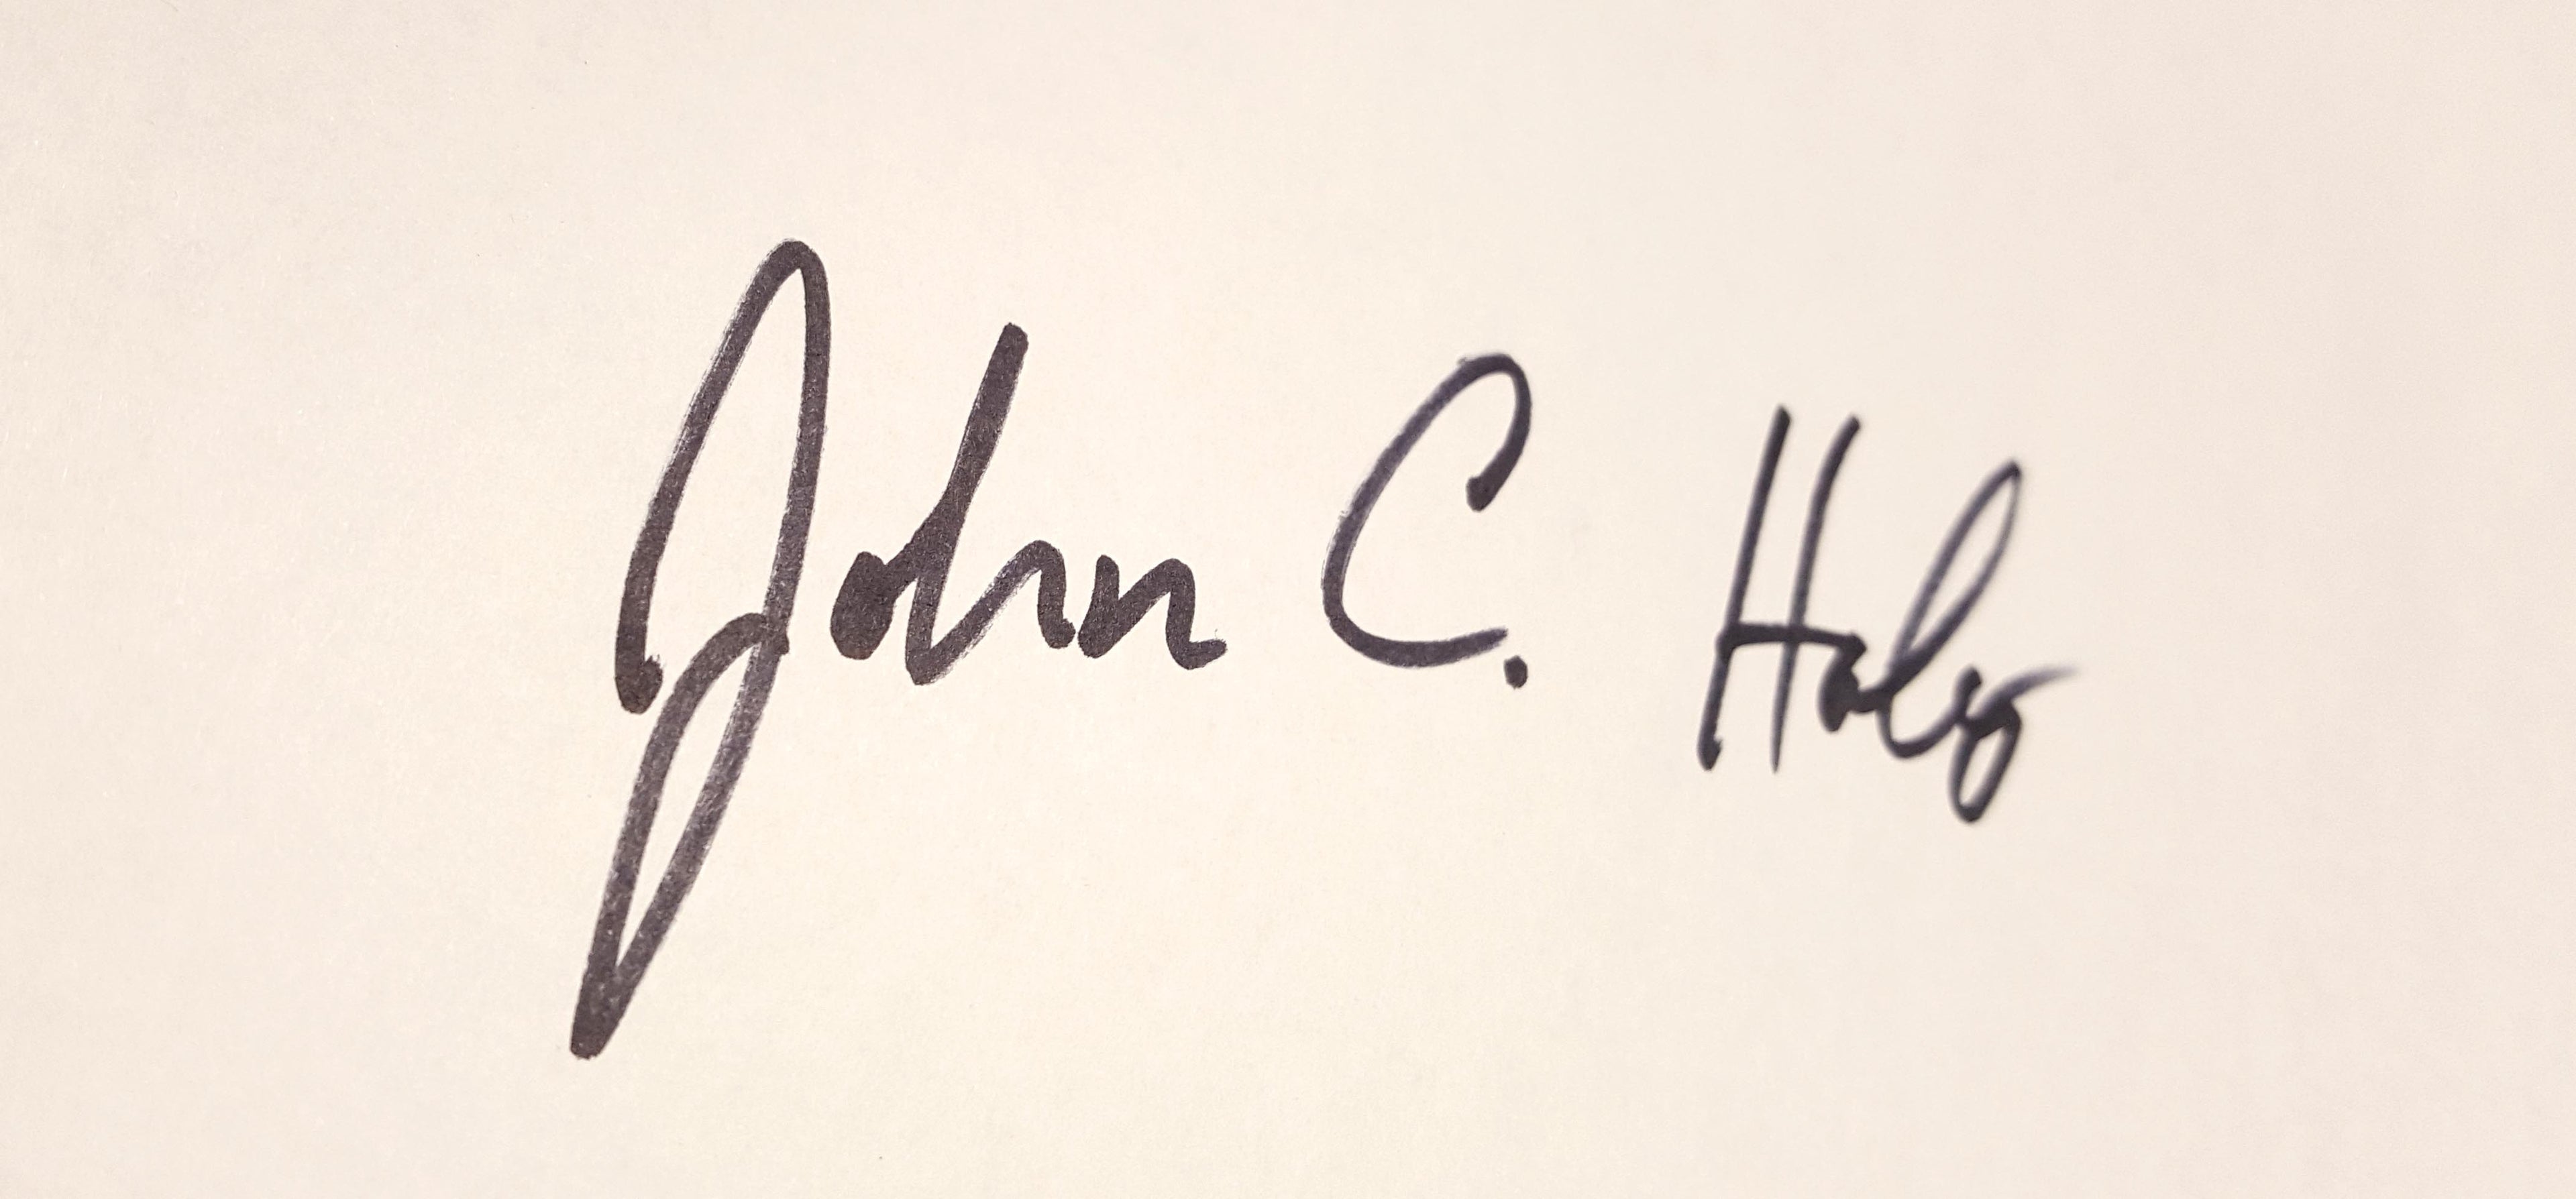 John C. Haley